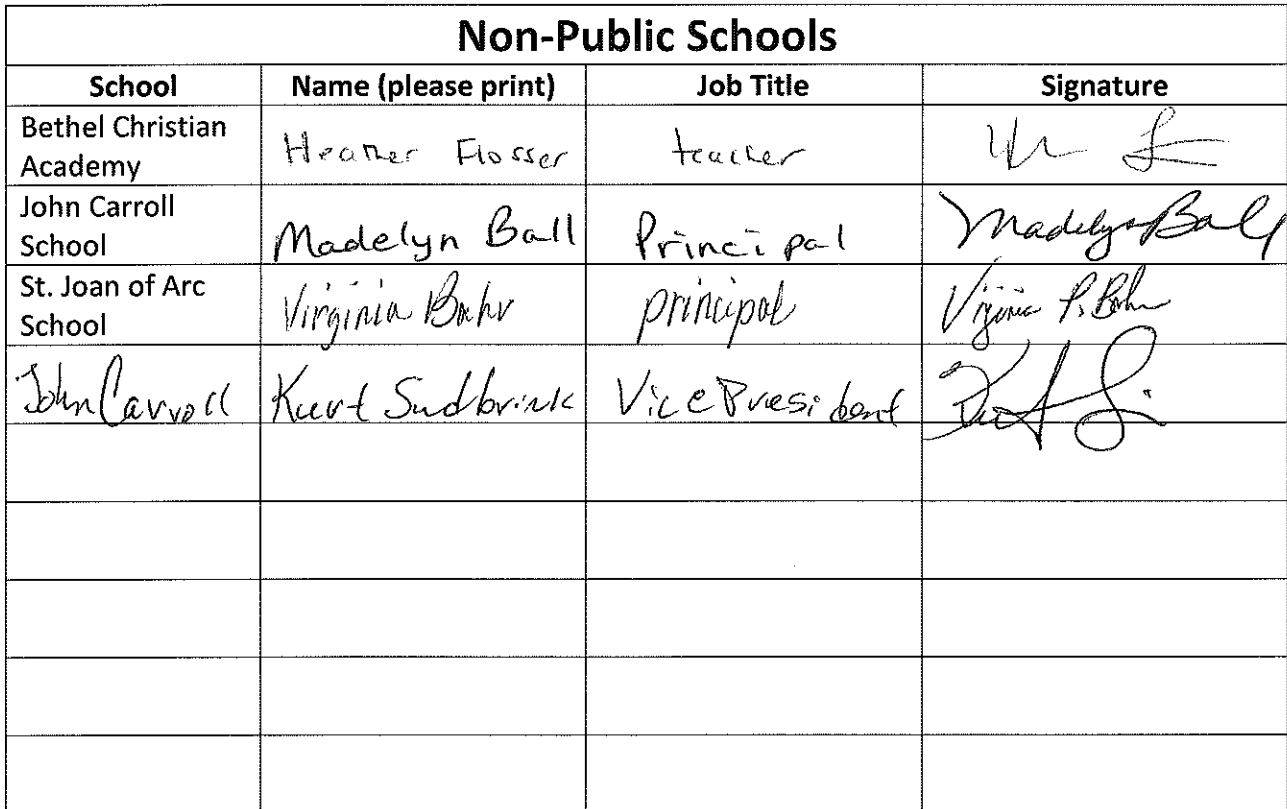 Non-Public Schools
School Name (please print) Job Title Signature
Bethel Christian Academy Heather Flosser teacher
John Carroll School Madelyn Ball Principal Madelyn Ball
St. Joan of Arc School Virginia Bahr principal Virginia P. Bahr
John Carroll Kurt Sudbrink Vice President